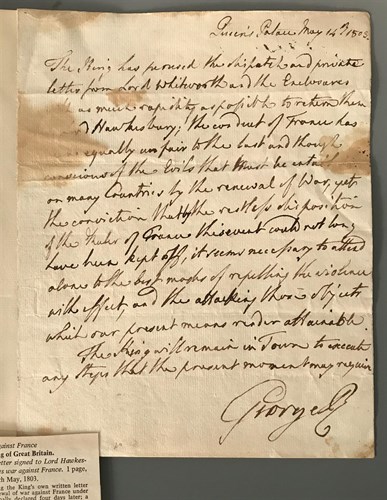 Queen's Palace May 14th 1803.
The King has perused the dispatch and private
letter from Lord Whitworth and the Enclosures
as much rapidity as possible to return them
Hawkesbury; the conduct of France has
equally unfair to the last and though
conscious of the Evils that must be entail
on many Countries by the renewal of War, yet
the conviction that by the restless disposition
of the Ruler of France this event could not long
have been kept off; it seems necessary to attend
alone to the best modes of repelling the violence
with effect, and the attacking those objects
which our present means render attainable.
The King will remain in Town to execute
any steps that the present moment may require
George R
against France
g of Great Britain.
etter signed to Lord Hawkes-
es war against France. 1 page,
h May, 1803.
g the King's own written letter
ewal of war against France under
ally declared four days later; a